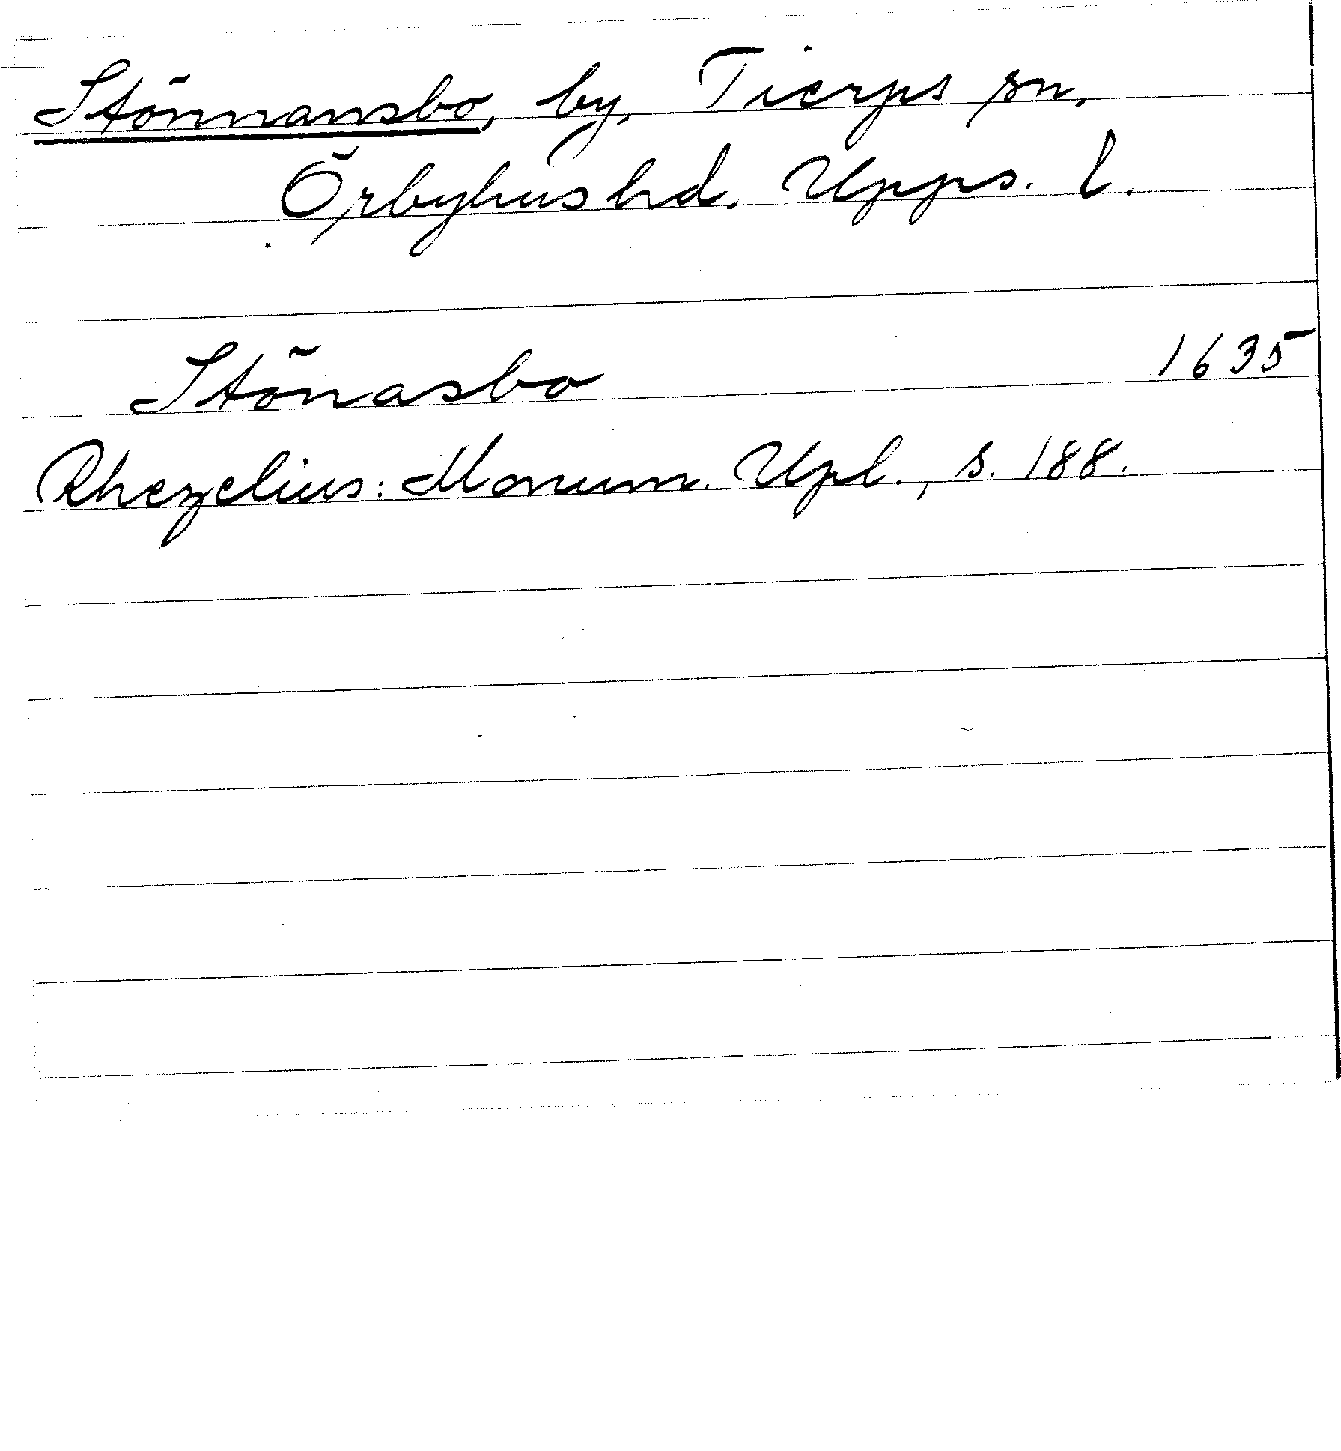 Stönnansbo, by, Tierps sn,
Örbyhus hd. Upps. l.
Stönasbo 1635
Rhezelius: Monum. Upl., s. 188.